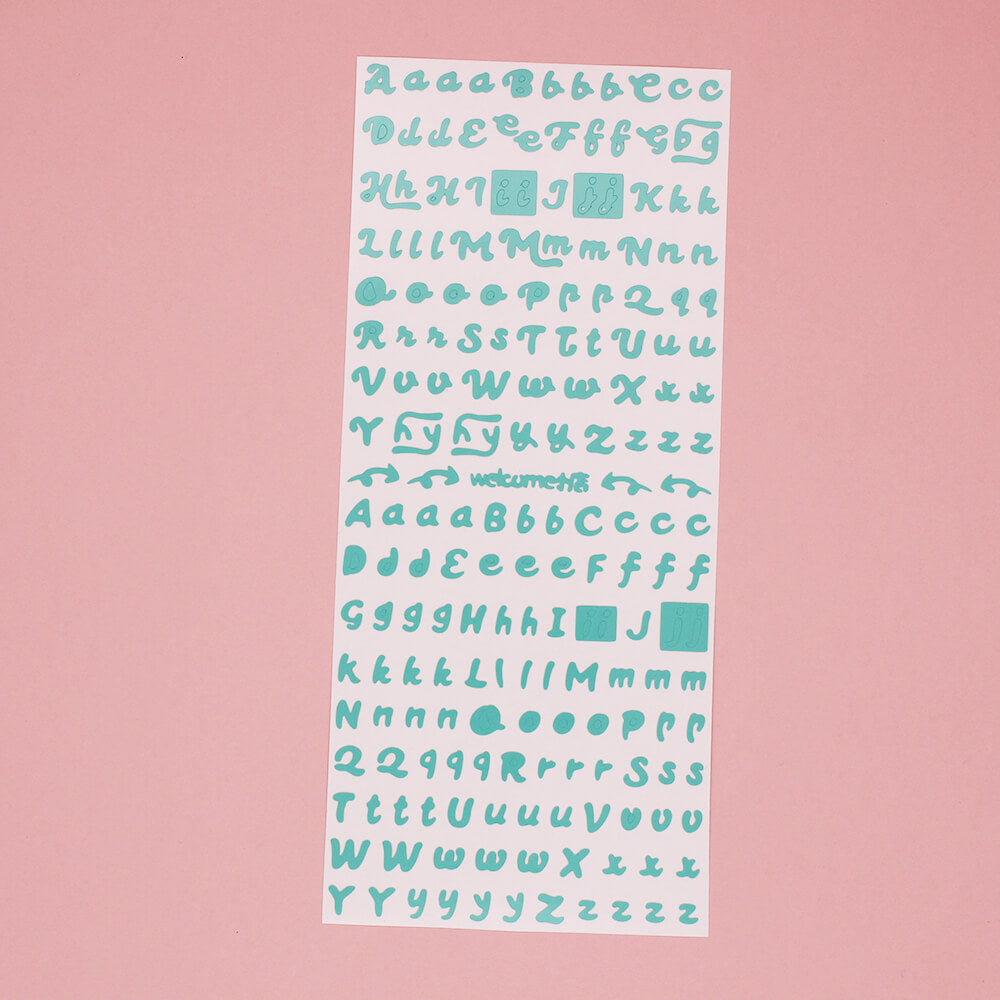 A a a a B b b b C c c
D d d E e e F f f G b g
H h H I i i J j j K k k
L l l l M M m m N n n
O o o o P p p Q q q
R r r S s T T t U u u
V v v W w w X x x
Y h y h y y y Z z z z
welcome
A a a a B b b C c c c
D d d E e e e F f f f
G g g g H h h I i i J j j
k k k k L l l l M m m m
N n n n O o o o P p p
Q Q q q q R r r r S s s
T t t t U u u u V v v v
W W w w w X x x x
Y Y y y y y Z z z z z